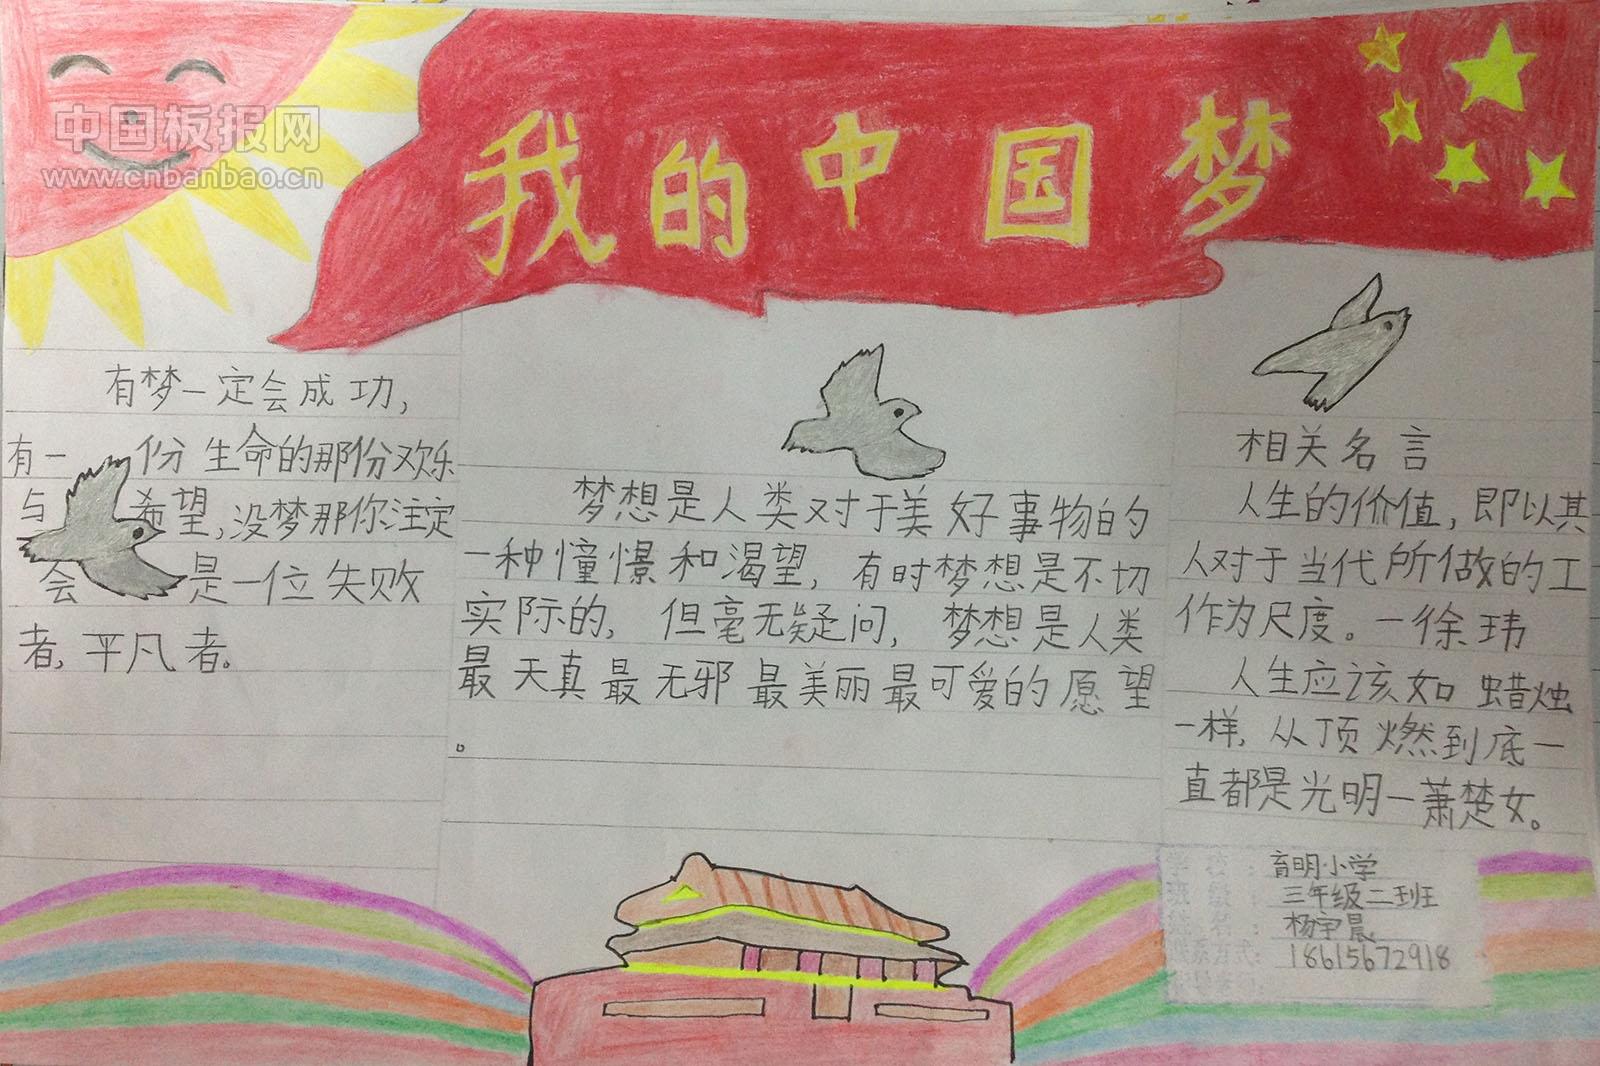 中国板报网
www.cnbanbao.cn
我的中国梦
有梦一定会成功，
有一份生命的那份欢乐
与希望，没梦那你注定
会是一位失败
者，平凡者。
梦想是人类对于美好事物的
一种憧憬和渴望，有时梦想是不切
实际的，但毫无疑问，梦想是人类
最天真最无邪最美丽最可爱的愿望
。
相关名言
人生的价值，即以其
人对于当代所做的工
作为尺度。一徐玮
人生应该如蜡烛
一样，从顶燃到底一
直都是光明一萧楚女。
学校：育明小学
班级：三年级二班
姓名：杨宇晨
联系方式：18615672918